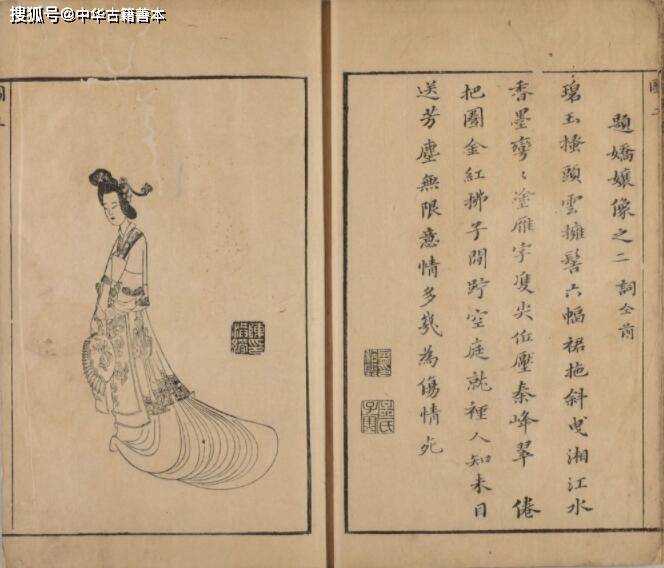 搜狐号@中华古籍善本
題嬌孃像之二 詞仝前
碧玉搔頭雲擁髻六幅裙拖斜曳湘江水
香墨彎〻塗雁字雙尖低壓秦峰翠 倦
把團金紅拂子閒野空庭就裡人知未目
送芳塵無限意情多幾為傷情死